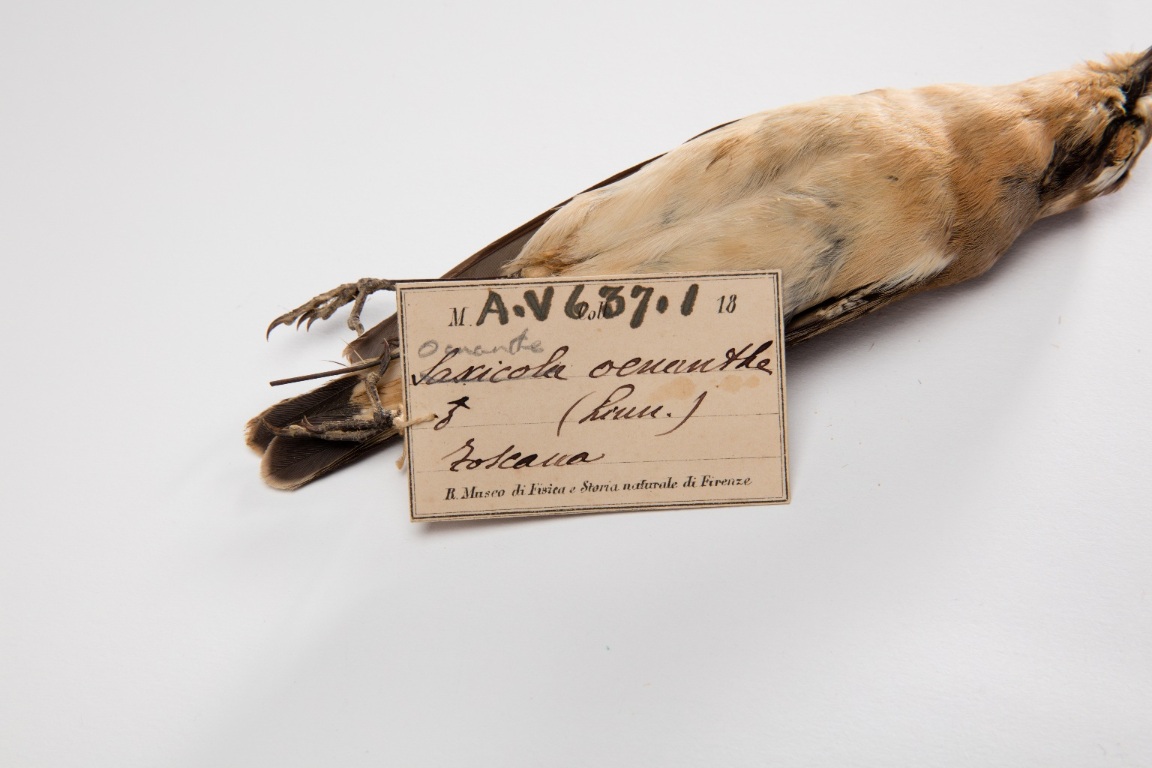 M. A.V 637.1 Coll. 18
Oenanthe
Saxicola oenanthe
♂ (Linn.)
Toscana
R. Museo di Fisica e Storia naturale di Firenze